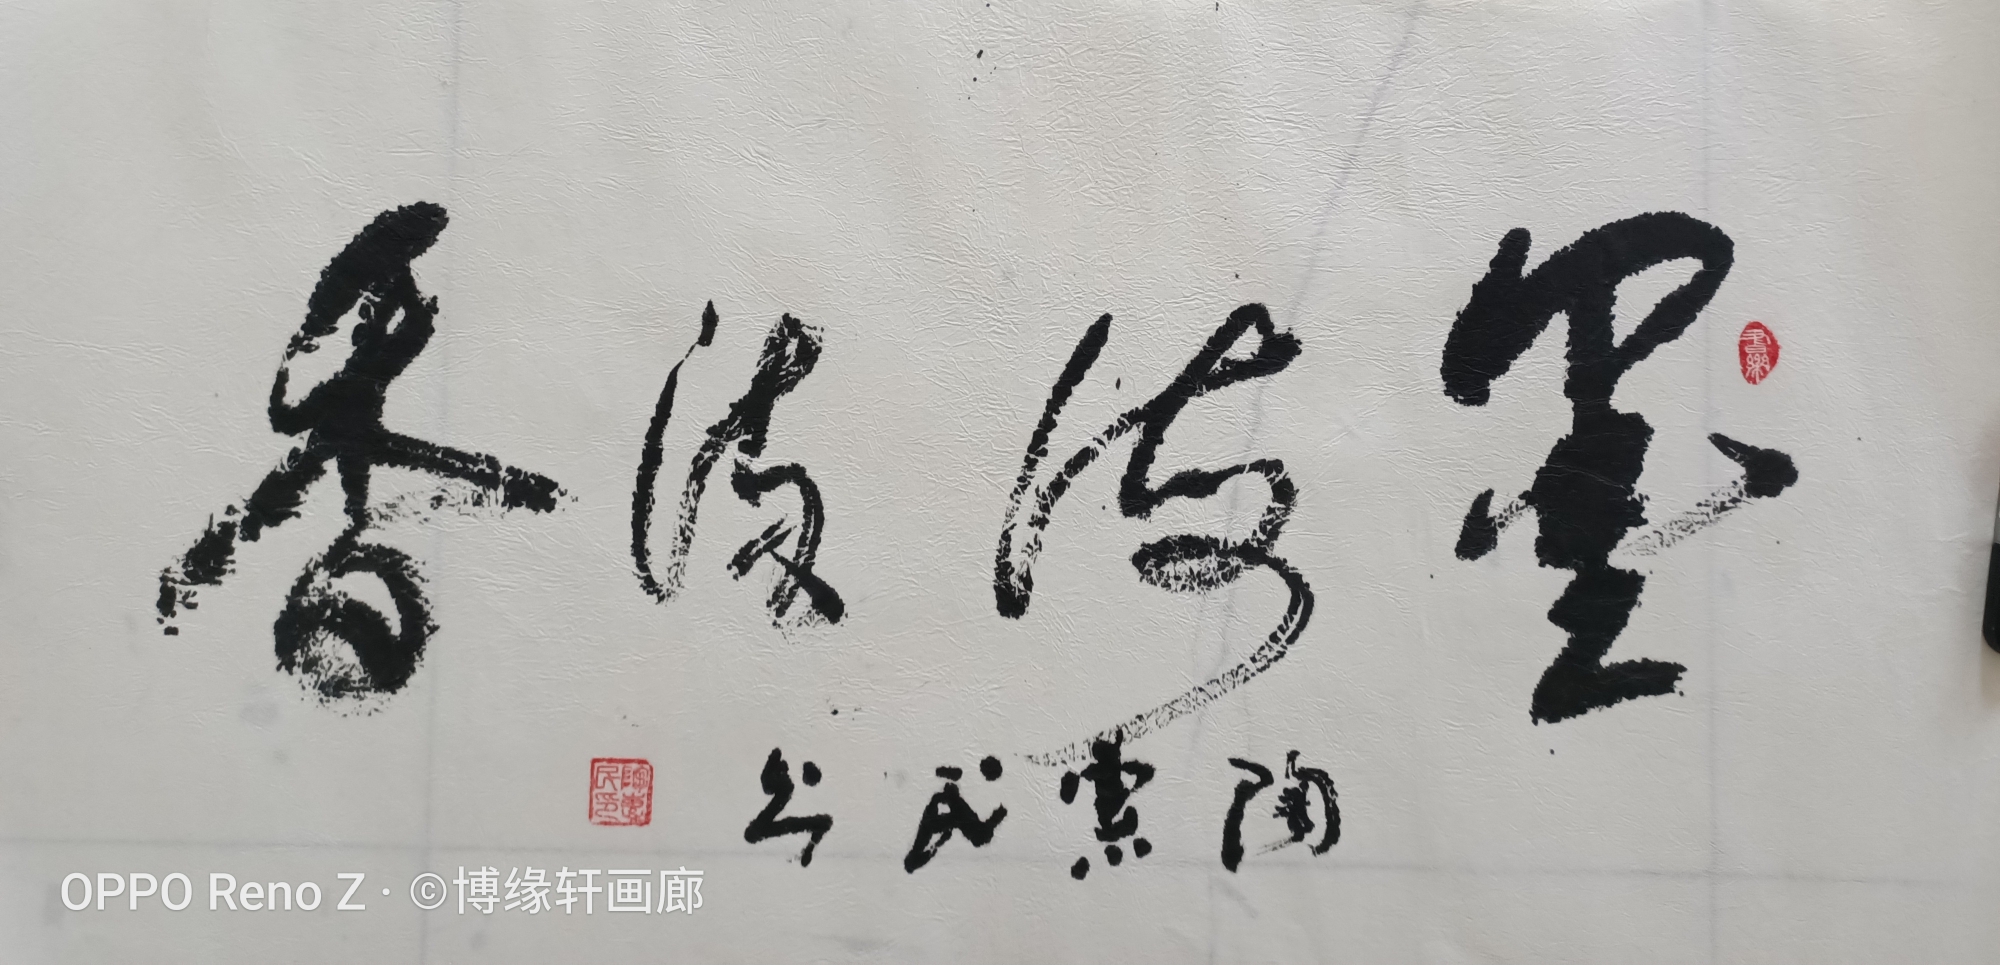 墨海香
陶憲民书
陶憲民印
OPPO Reno Z · ©博缘轩画廊